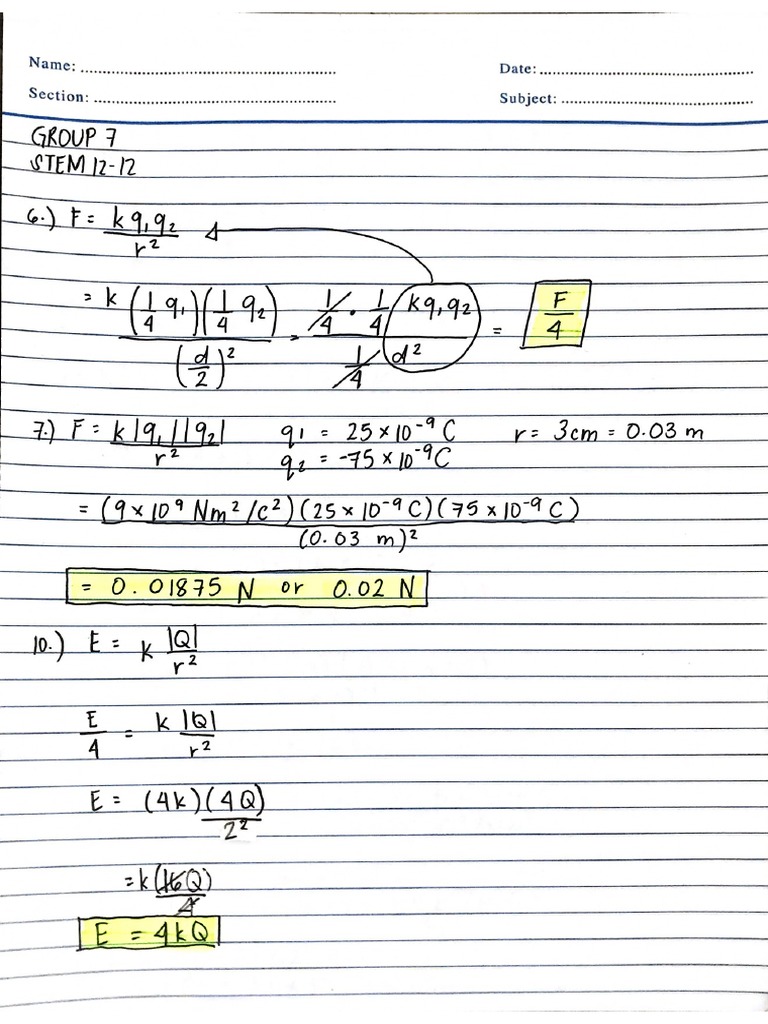 Name: ........................................
Date: ........................................
Section: ........................................
Subject: ........................................
GROUP 7
STEM 12-12
6.) F = k q₁q₂ / r²
= k (1/4 q₁)(1/4 q₂) / (d/2)² = 1/4 · 1/4 kq₁q₂ / 1/4 d² = F/4
7.) F = k|q₁||q₂| / r² q₁ = 25 × 10⁻⁹ C r = 3cm = 0.03 m
q₂ = -75 × 10⁻⁹ C
= (9 × 10⁹ Nm²/c²)(25 × 10⁻⁹ C)(75 × 10⁻⁹ C) / (0.03 m)²
= 0.01875 N or 0.02 N
10.) E = k |Q| / r²
E/4 = k |Q| / r²
E = (4k)(4Q) / 2²
= k (16Q) / 4
E = 4kQ